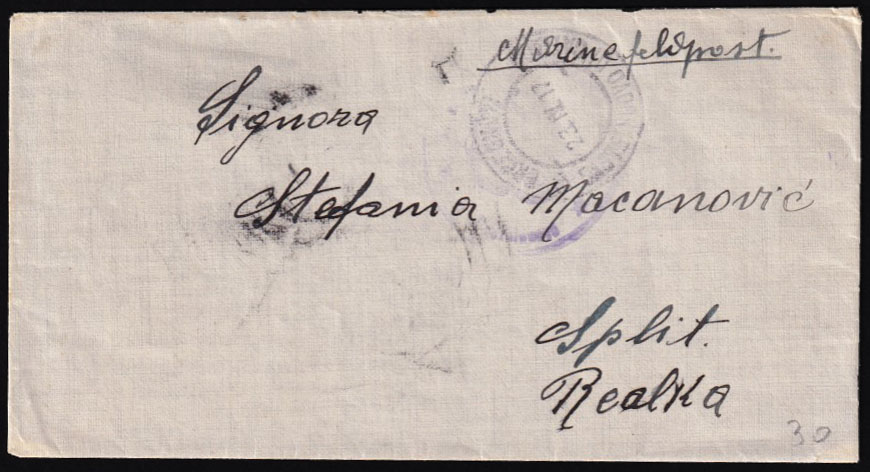 Marinefeldpost.
23.IV.17
Signora
Stefania Macanović
Split.
Realka
30